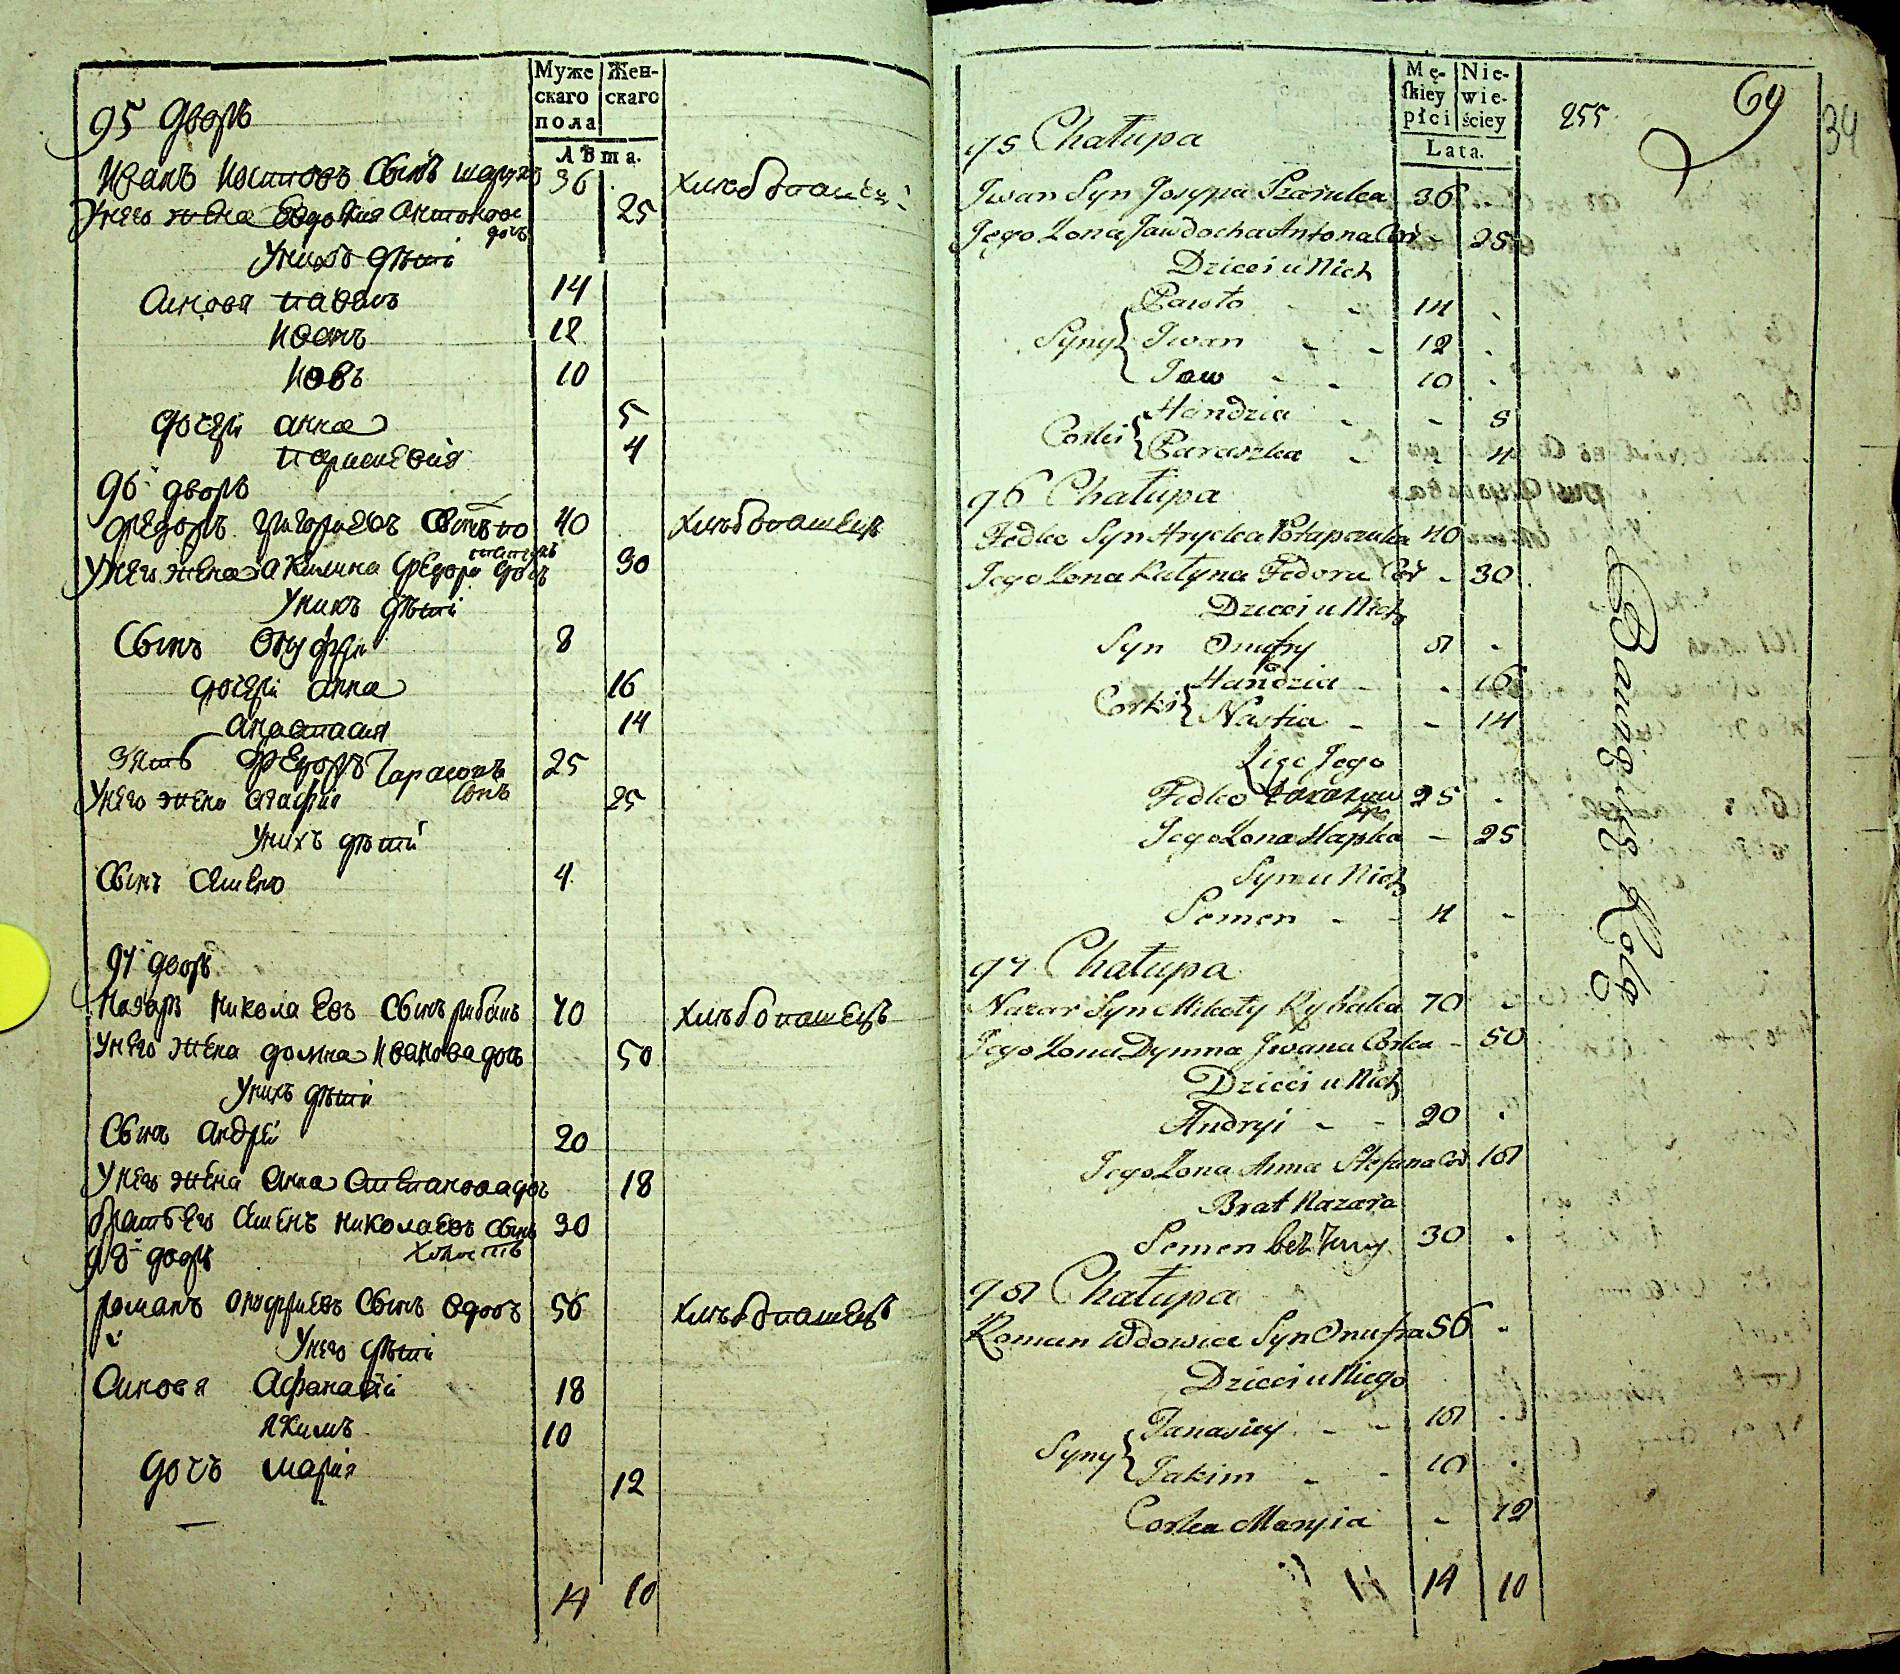 Муже
скаго
пола
Жен-
скаго
Лѣта.
95 дворъ
Иванъ Иосиповъ Сынъ 36 хлѣбопашецъ
У него жена Евдокия Антонова дочь 25
У нихъ дѣти
Синовя Павелъ 14
Иванъ 12
Иовъ 10
дочери анна 5
Параскевия 4
96 дворъ
Федоръ Григориевъ Сынъ По 40 хлѣбопашецъ
У него жена Акилина Федора дочь 30
У нихъ дѣти
Сынъ Онуфри 8
дочери анна 16
анастасия 14
Зять Федоръ Тарасовъ Сынъ 25
У него жена агафия 25
У нихъ дѣти
Сынъ Семенъ 4
97 дворъ
Назаръ Николаевъ Сынъ рибакъ 70 хлѣбопашецъ
У него жена домна Иванова дочь 50
У нихъ дѣти
Сынъ андрей 20
У него жена анна Степанова дочь 18
братъ его Семенъ Николаевъ Сынъ 30
холостъ
98 дворъ
романъ онуфриевъ Сынъ вдовъ 56 хлѣбопашецъ
й
У него дѣти
Синовя Афанасий 18
Якимъ 10
дочь Мария 12
14 10
Mę-
skiey
płci
Nie-
wie-
ściey
Lata.
255
69
34
95 Chałupa
Iwan Syn Josypa Szarulca 36
Jego Żona Jawdocha Antona Cór 25
Dzieci u Nich
Pawło 14
Syny Iwan 12
Jow 10
Handzia 5
Corki Paraszka 4
96 Chałupa
Fedko Syn Hrycka Potapczuka 40
Jego Żona Kułyna Fedora Cór 30
Dzieci u Nich
Syn Onufry 8
Handzia 16
Corki Nastia 14
Zięć Jego
Fedko Tarasow 25
Jego Żona Hapka 25
Syn u Nich
Semen 4
97 Chałupa
Nazar Syn Mikoły Rybaka 70
Jego Żona Dymna Iwana Corka 50
Dzieci u Nich
Andryi 20
Jego Żona Anna Stefana Cór 18
Brat Nazara
Semen bez Żony 30
98 Chałupa
Roman Wdowiec Syn Onufra 56
Dzieci u Niego
Tanasiey 18
Syny Jakim 10
Corka Maryia 12
14 10